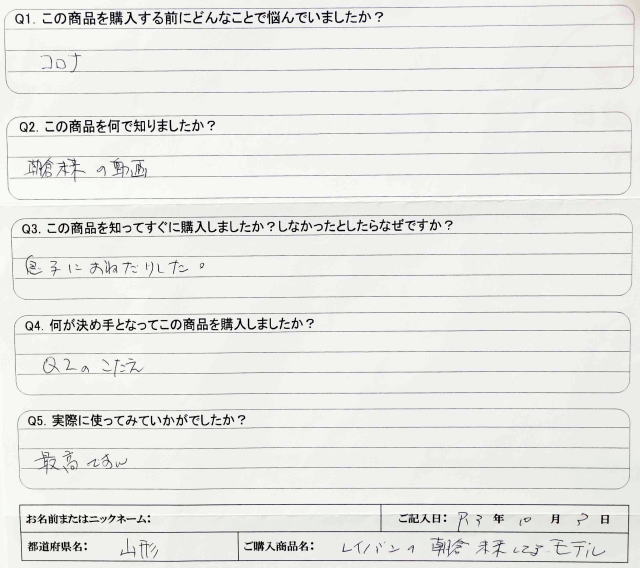 Q1. この商品を購入する前にどんなことで悩んでいましたか？
コロナ
Q2. この商品を何で知りましたか？
朝倉未来の動画
Q3. この商品を知ってすぐに購入しましたか？しなかったとしたらなぜですか？
息子におねだりした。
Q4. 何が決め手となってこの商品を購入しましたか？
Q2のこたえ
Q5. 実際に使ってみていかがでしたか？
最高です
お名前またはニックネーム： ご記入日： R3 年 10 月 3 日
都道府県名： 山形 ご購入商品名： レイバンの朝倉未来してるモデル